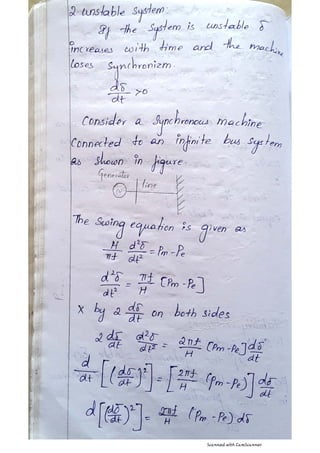 2. unstable System:
If the System is unstable δ
increases with time and the machine
loses Synchronizm.
dδ/dt >0
Consider a Synchronous machine
Connected to an infinite bus System
as shown in figure.
Generator
line
The Swing equation is given as
H/πf d²δ/dt² = Pm - Pe
d²δ/dt² = πf/H [Pm - Pe]
x by 2 dδ/dt on both sides
2 dδ/dt d²δ/dt² = 2πf/H [Pm - Pe] dδ/dt
d/dt [(dδ/dt)²] = [2πf/H (Pm - Pe)] dδ/dt
d[(dδ/dt)²] = 2πf/H (Pm - Pe) dδ
Scanned with CamScanner